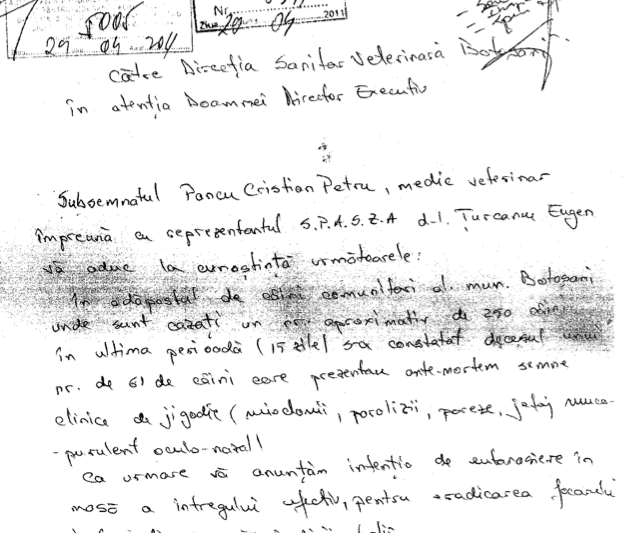 5005
29 04 2011
Nr.
Ziua 29 04 2011
Către Direcția Sanitar Veterinară Botoșani
în atenția Doamnei Director Executiv
Subsemnatul Pancu Cristian Petru, medic veterinar
împreună cu reprezentantul S.P.A.S.Z.A d-l. Țurcanu Eugen
vă aduc la cunoștință următoarele:
În adăpostul de câini comunitari al mun. Botoșani
unde sunt cazați un nr. aproximativ de 250 câini
în ultima perioadă (15 zile) s-a constatat decesul unui
nr. de 61 de câini care prezentau ante-mortem semne
clinice de jigodie (mioclonii, paralizii, pareze, jetaj muco-
-purulent oculo-nazal)
Ca urmare vă anunțăm intenția de eutanasiere în
masă a întregului efectiv, pentru eradicarea focarului